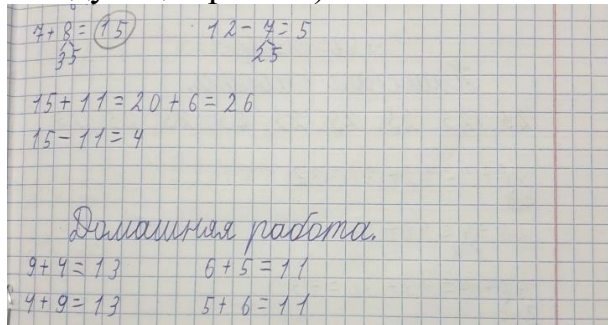 7+8=15 12-7=5
35 25
15+11=20+6=26
15-11=4
Домашняя работа.
9+4=13 6+5=11
4+9=13 5+6=11